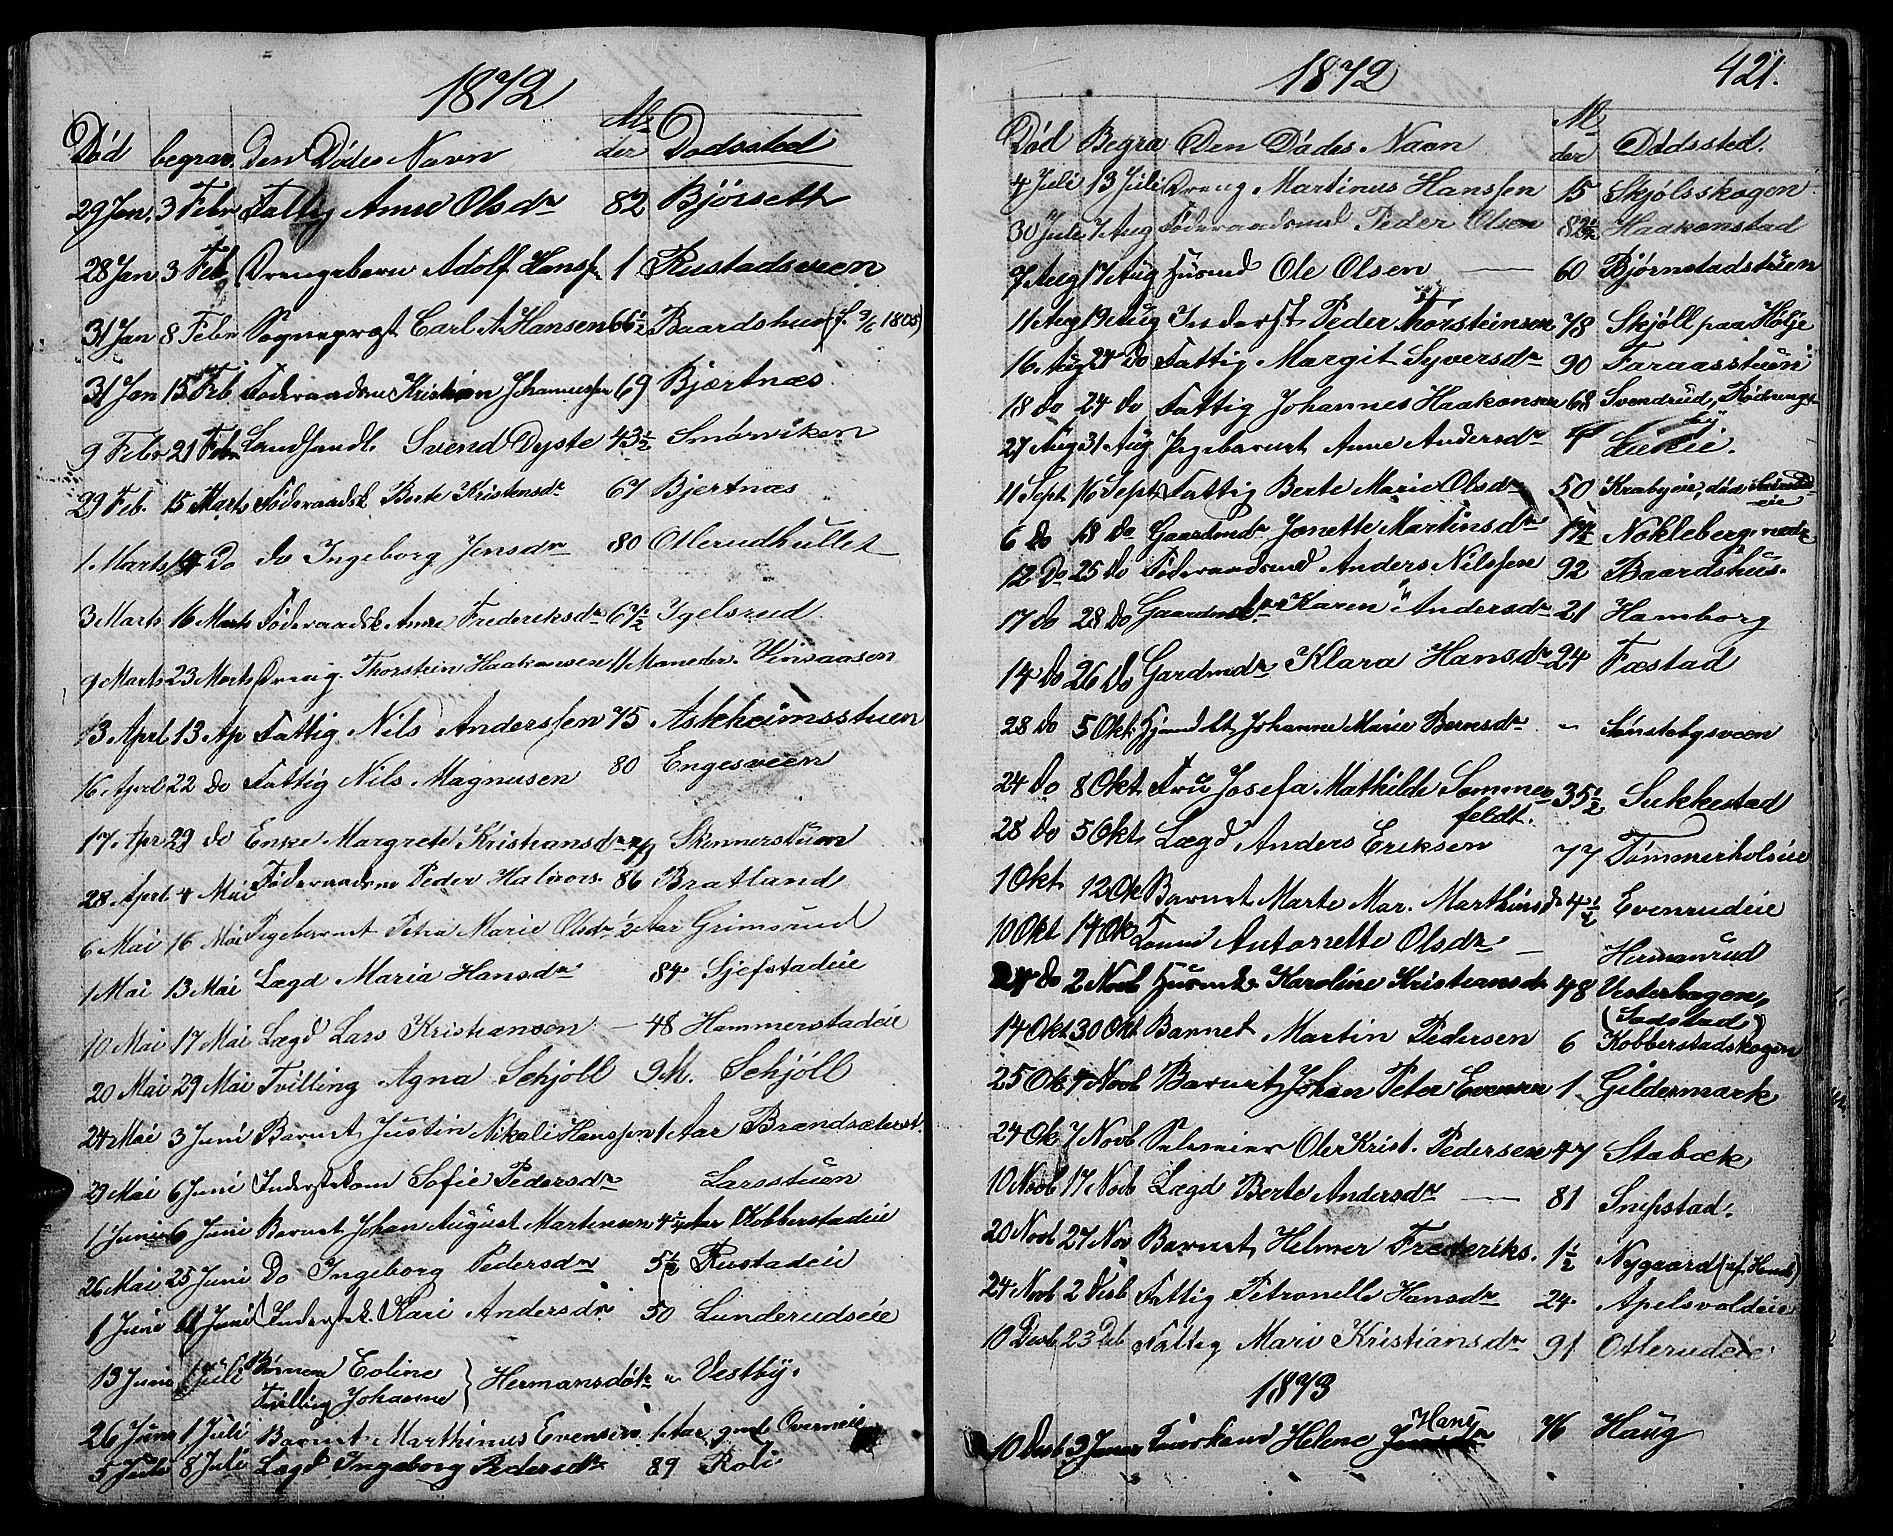 1872
Død begrav. den Dødes Navn Al- der Dødssted
29 Jan. 3 Febr Fattig Anne Olsdr 82 Bjørsett
28 Jan 3 Feb Drengebarn Adolf Hanss. 1 Rustadsveen
31 Jan 8 Febr Sognepræst Carl A. Hansen 66½ Baardshus (f. 9/6 1805)
31 Jan 15 Feb Føderaadsm Kristian Johannessen 69 Bjærtnæs
9 Febr 21 Febr Landhandl. Svend Dyste 43½ Smörviken
29 Feb. 15 Marts Föderaadsk Berte Kristensdr 67 Bjertnæs
1 Marts 14 Do do Ingeborg Jensdr 80 Oterudhullet
3 Marts 16 Marts Föderaadsk Anne Frederiksdr 67½ Igelsrud
9 Marts 23 Marts Dreng Thorstein Haakonsen 11 Maneder Vinsaasen
13 April 13 Ap Fattig Nils Anderssen 75 Askheimsstuen
16 April 22 do Fattig Nils Magnusen 80 Engesveen
17 Apr 29 do Enke Margrete Kristiansdr 79 Skinnerstuen
28 Aprl 4 Mai Föderaadsm Peder Halvors. 86 Bratland
6 Mai 16 Mai Pigebarnet Petra Marie Olsdr ½ Aar Grimsrud
1 Mai 13 Mai Lægd Maria Hansdr 84 Sjefstadeie
10 Mai 17 Mai Lægd Lars Kristiansen – 48 Hammerstadeie
20 Mai 29 Mai Tvilling Agna Schjöll 9 M. Schjöll
24 Mai 3 Juni Barnet Justin Nikolai Hanssen 1 Aar Brandsæterst.
29 Mai 6 Juni Inderstekone Sofie Pedersdr Larsstuen
1 Juni 6 Juni Barnet Johan August Martinsen 4½ Aar Kobberstadeie
26 Mai 25 Juni Do Ingeborg Pedersdr 5½ Rustadeie
1 Juni Juni Inderstek. Kari Andersdr 50 Lunderudseie
13 Juni 1 Juli Börnene Eoline
Tvilling Johanne } Hermansdöt. „ Vestby.
26 Juni 1 Juli Barnet Marthinus Evensen 1 Aar gml Overneie
5 Juli 8 Juli Lægd Ingeborg Pedersdr 89 Roli
1872 421.
Død Begra Den Dødes Navn Al- der Dødssted.
4 Juli 13 Juli Dreng Martinus Hanssen 15 Skjølsskogen
30 Juli 7 Aug Föderaadsmd Peder Olsen 82½ Haakonstad
9 Aug 17 Aug Husmd Ole Olsen — 60 Bjørnstadstuen
11 Aug 19 Aug Inderst Peder Thorsteinsen 78 Skjøll paa Hølje
16 Aug 24 Do Fattig Margit Syversdr 90 Faraasstuen
18 do 24 do Fattig Johannes Haakonsen 68 Svendrud, Rødnings-
27 Aug 31 Aug Pigebarnet Anne Andersdr 4 Lukeie.
11 Sept 16 Sept. Fattig Berte Marie Olsdr 50 Krabyeie, død
6 Do 18 Do Gaardmdr Jonette Martinsdr 1½ Nøkleberg nedre
12 Do 25 Do Föderaadsmd Anders Nilssen 92 Baardshus.
17 do 28 do Gaardmdr Karen Andersdr 21 Hamborg
14 do 26 do Gardmdr Klara Hansdr 24 Fæstad
28 do 5 Okt. Johanne Marie Berntsdr – Sønstebysveen
24 do 8 Okt. Fru Josefa Mathilde Sommer-
feldt. 35½ Sukkestad
28 do 5 Okt Lægd Anders Eriksen 77 Tømmerholseie
1 Okt 12 Ok Barnet Marte Mar. Marthinsdr 4½ Evenrudeie
10 Okt 14 Ok Antonette Olsdr — Hermanrud
24 do 2 Novb Husmk. Karoline Kristiansdr 48 Vesterhagen
(Sodstad)
14 Okt 30 Okt Barnet Martin Pedersen 6 Kobberstadskogen
25 Ok 4 Novb Barnet Johan Peter Evensen 1 Gildermark
24 Ok 7 Novb Selveier Ole Krist. Pedersen 47 Stabæk
10 Novb 17 Novb Lægd Berte Andersdr — 81 Snipstad.
20 Novb 27 Nov Barnet Helmer Frederiks. 1½ Nygaard
24 Novb 2 Desb Fattig Petronelle Hansdr 24 Apelsvoldeie
10 Desb 23 Des Fattig Mari Kristiansdr 91 Oterudeie
1873
10 Desb 3 Januar Helene Hans 76 Haug